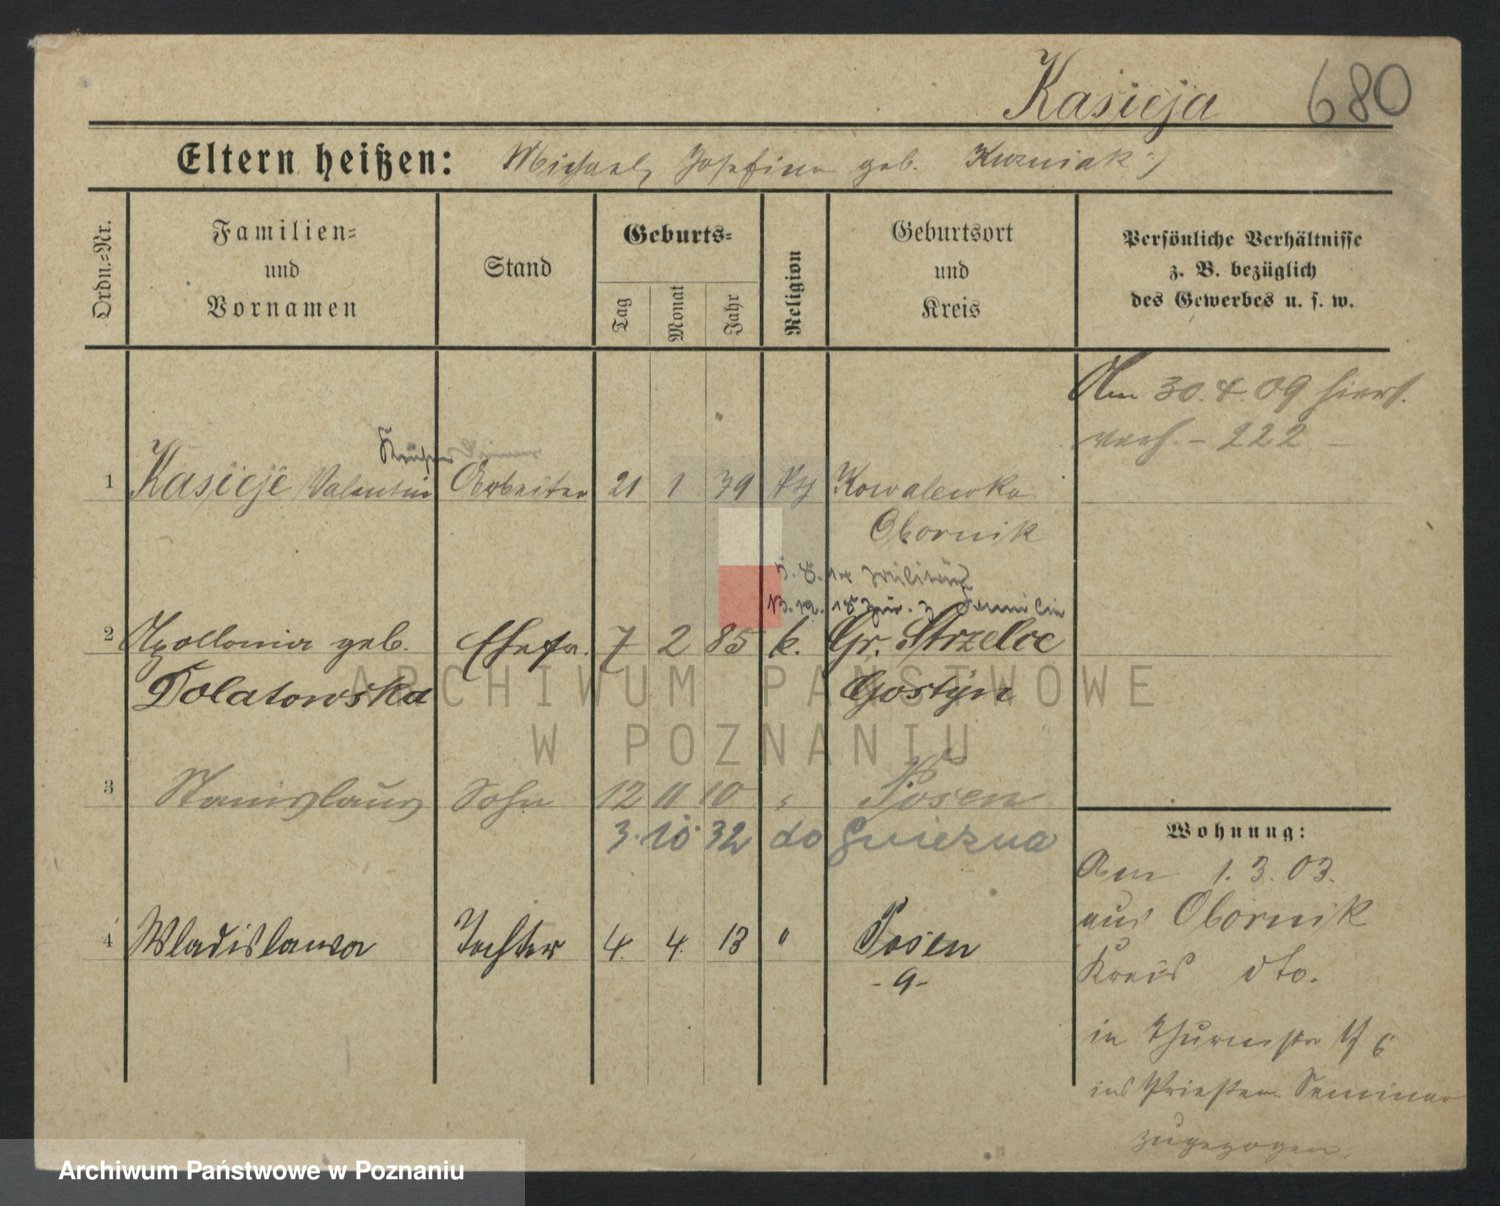 Kasieja 680
Eltern heißen: Michael, Josefina geb. Kuzniak
Ordn.-Nr.
Familien-
und
Vornamen
Stand
Geburts-
Tag
Monat
Jahr
Religion
Geburtsort
und
Kreis
Persönliche Verhältnisse
z. B. bezüglich
des Gewerbes u. s. w.
Am 30.4.09 hiers.
verh. - 222 -
1 Kasieje Valentin Arbeiter 21 1 79 Kowalewko
Obornik
5. 8. 14 Militär
2 Apollonia geb. Ehefr. 7 2 85 k. Gr. Strzelce
Dolatowska Gostyn
3 Stanislaus Sohn 12 11 10 " Posen
3. 10. 32 do Gniezna
4 Wladislawa Tochter 4. 4. 13 " Posen
- 9 -
Wohnung:
Am 1. 3. 03.
aus Obornik
Kreis dto.
in Thurmstr 6
ins Priester Seminar
zugezogen.
ARCHIWUM PAŃSTWOWE
W POZNANIU
Archiwum Państwowe w Poznaniu